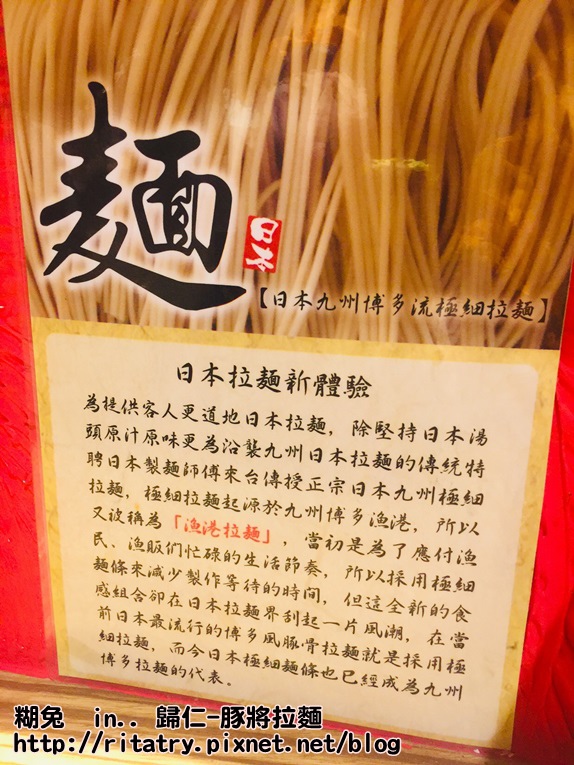 麵
日本
【日本九州博多流極細拉麵】
日本拉麵新體驗
為提供客人更道地日本拉麵，除堅持日本湯
頭原汁原味更為沿襲九州日本拉麵的傳統特
聘日本製麵師傅來台傳授正宗日本九州極細
拉麵，極細拉麵起源於九州博多漁港，所以
又被稱為「漁港拉麵」，當初是為了應付漁
民、漁販們忙碌的生活節奏，所以採用極細
麵條來減少製作等待的時間，但這全新的食
感組合卻在日本拉麵界刮起一片風潮，在當
前日本最流行的博多風豚骨拉麵就是採用極
細拉麵，而今日本極細麵條也已經成為九州
博多拉麵的代表。
糊兔 in.. 歸仁-豚將拉麵
http://ritatry.pixnet.net/blog